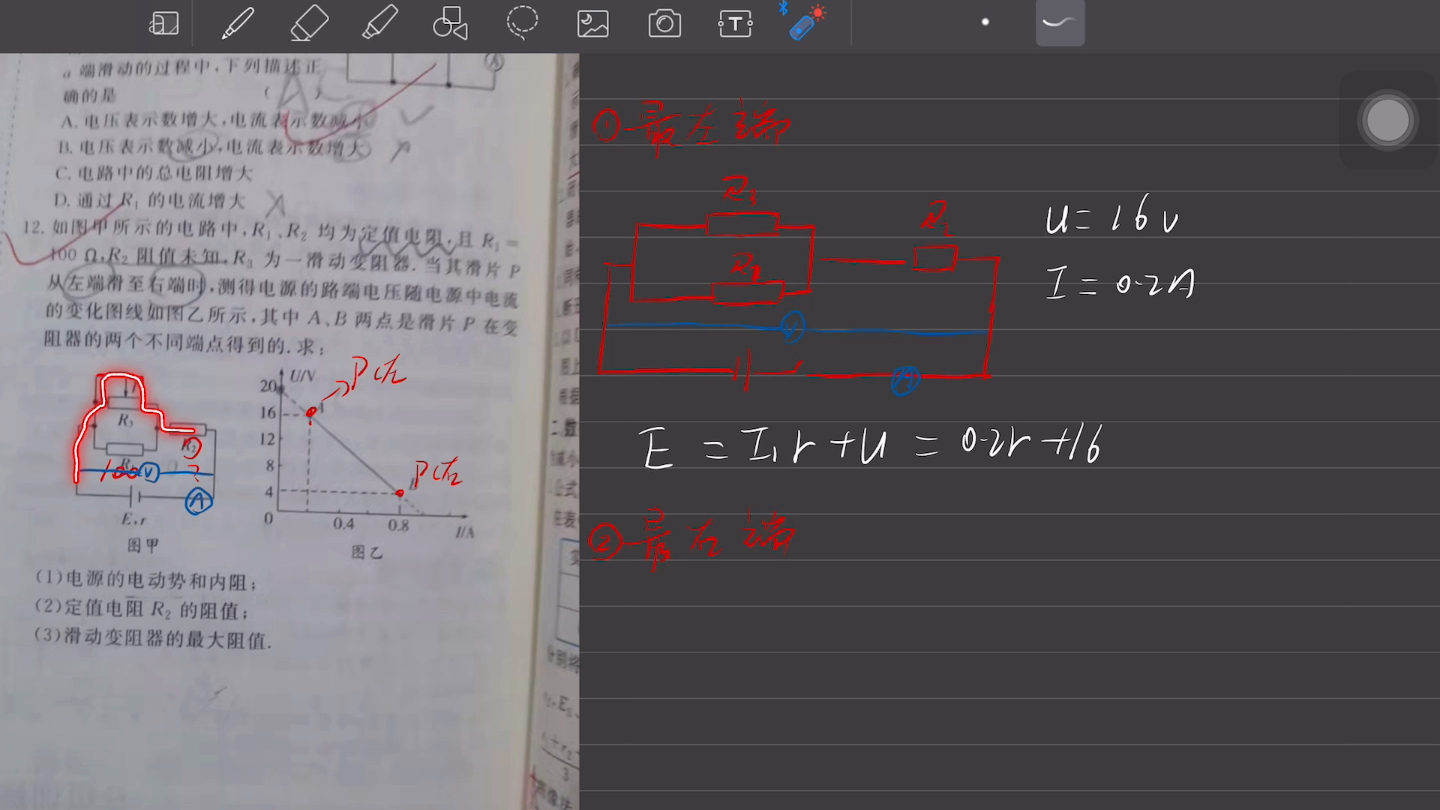 T
a 端滑动的过程中,下列描述正
确的是 ( A )
A. 电压表示数增大,电流表示数减小
B. 电压表示数减小,电流表示数增大
C. 电路中的总电阻增大
D. 通过 R₁ 的电流增大
12. 如图甲所示的电路中,R₁、R₂ 均为定值电阻,且 R₁=
100 Ω,R₂ 阻值未知,R₃ 为一滑动变阻器.当其滑片 P
从左端滑至右端时,测得电源的路端电压随电源中电流
的变化图线如图乙所示,其中 A、B 两点是滑片 P 在变
阻器的两个不同端点得到的.求:
R₃
R₂
100
?
V
A
E,r
图甲
U/V
20
16
12
8
4
0
0.4
0.8
I/A
A
B
P左
P右
图乙
(1)电源的电动势和内阻;
(2)定值电阻 R₂ 的阻值;
(3)滑动变阻器的最大阻值.
①最左端
R₃
R₂
V
A
U=16V
I=0.2A
E=I₁r+U=0.2r+16
②最右端